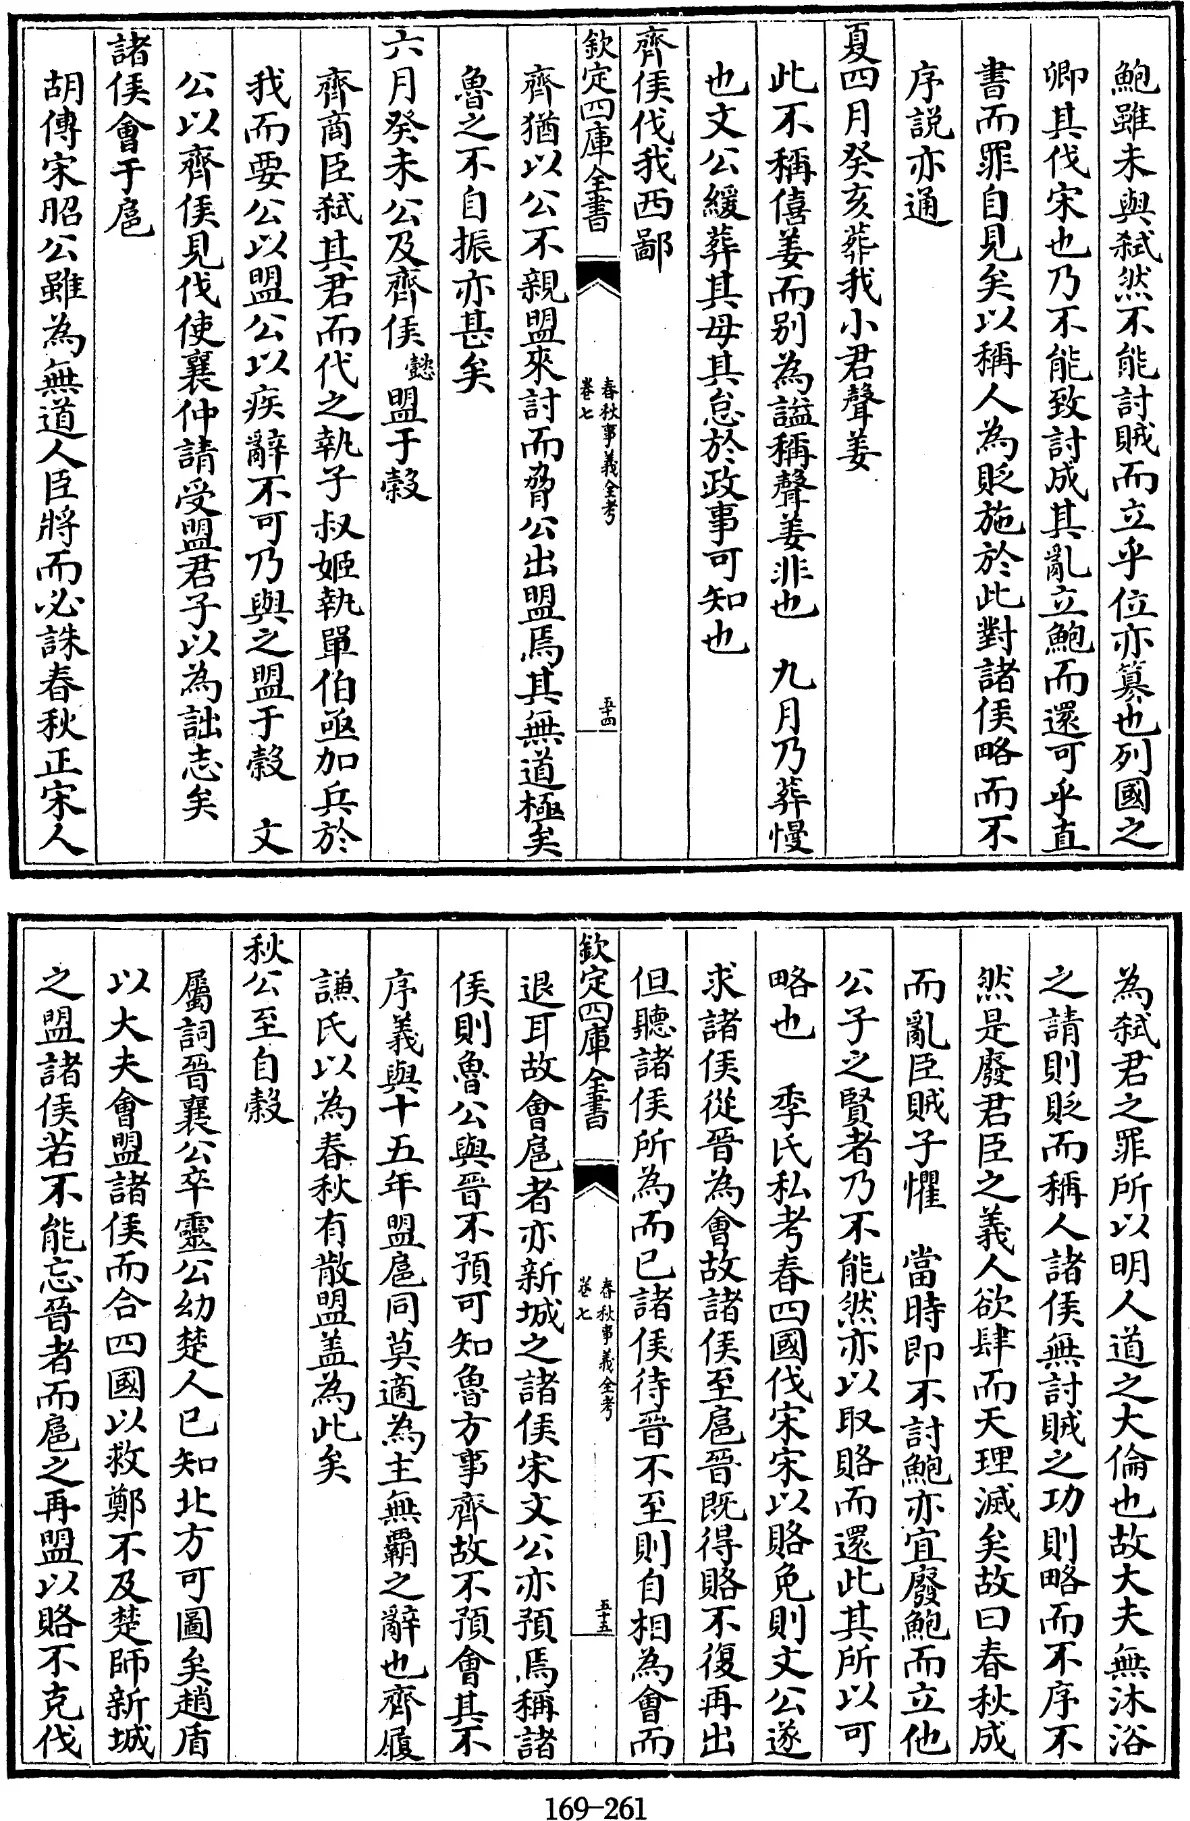 鮑雖未與弑然不能討賊而立乎位亦篡也列國之
卿其伐宋也乃不能致討成其亂立鮑而還可乎直
書而罪自見矣以稱人為貶施於此對諸侯略而不
序説亦通
夏四月癸亥葬我小君聲姜
此不稱僖姜而别為諡稱聲姜非也　九月乃葬慢
也文公緩葬其母其怠於政事可知也
齊侯伐我西鄙
欽定四庫全書
春秋事義全考
卷七
五十四
齊猶以公不親盟來討而脅公出盟焉其無道極矣
魯之不自振亦甚矣
六月癸未公及齊侯懿盟于糓
齊商臣弑其君而代之執子叔姬執單伯亟加兵於
我而要公以盟公以疾辭不可乃與之盟于糓　文
公以齊侯見伐使襄仲請受盟君子以為詘志矣
諸侯會于扈
胡傳宋昭公雖為無道人臣將而必誅春秋正宋人
為弑君之罪所以明人道之大倫也故大夫無沐浴
之請則貶而稱人諸侯無討賊之功則略而不序不
然是廢君臣之義人欲肆而天理滅矣故曰春秋成
而亂臣賊子懼　當時即不討鮑亦宜廢鮑而立他
公子之賢者乃不能然亦以取賂而還此其所以可
略也　季氏私考春四國伐宋宋以賂免則文公遂
求諸侯從晉為會故諸侯至扈晉既得賂不復再出
但聽諸侯所為而已諸侯待晉不至則自相為會而
欽定四庫全書
春秋事義全考
卷七
五十五
退耳故會扈者亦新城之諸侯宋文公亦預焉稱諸
侯則魯公與晉不預可知魯方事齊故不預會其不
序義與十五年盟扈同莫適為主無覇之辭也齊履
謙氏以為春秋有散盟盖為此矣
秋公至自糓
屬詞晉襄公卒靈公幼楚人已知北方可圖矣趙盾
以大夫會盟諸侯而合四國以救鄭不及楚師新城
之盟諸侯若不能忘晉者而扈之再盟以賂不克伐
169-261